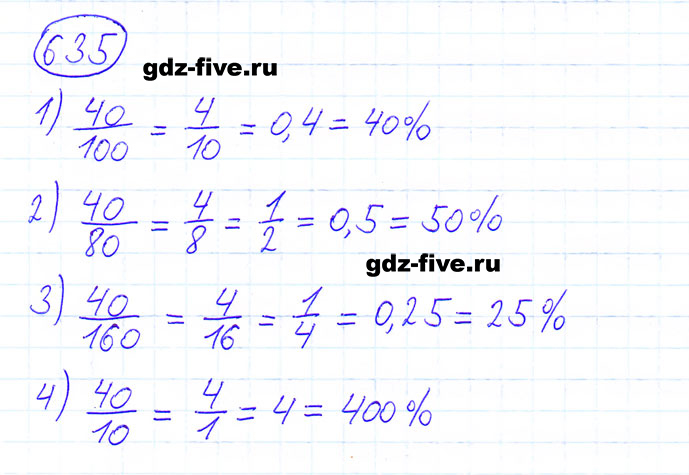 635
gdz-five.ru
1) 40/100 = 4/10 = 0,4 = 40%
2) 40/80 = 4/8 = 1/2 = 0,5 = 50%
gdz-five.ru
3) 40/160 = 4/16 = 1/4 = 0,25 = 25%
4) 40/10 = 4/1 = 4 = 400%